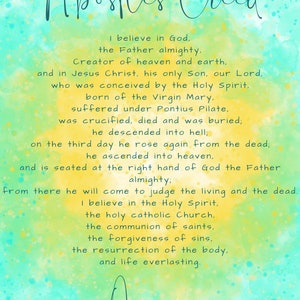 Apostles Creed
I believe in God,
the Father almighty,
Creator of heaven and earth,
and in Jesus Christ, his only Son, our Lord,
who was conceived by the Holy Spirit,
born of the Virgin Mary,
suffered under Pontius Pilate,
was crucified, died and was buried;
he descended into hell;
on the third day he rose again from the dead;
he ascended into heaven,
and is seated at the right hand of God the Father
almighty;
from there he will come to judge the living and the dead.
I believe in the Holy Spirit,
the holy catholic Church,
the communion of saints,
the forgiveness of sins,
the resurrection of the body,
and life everlasting.